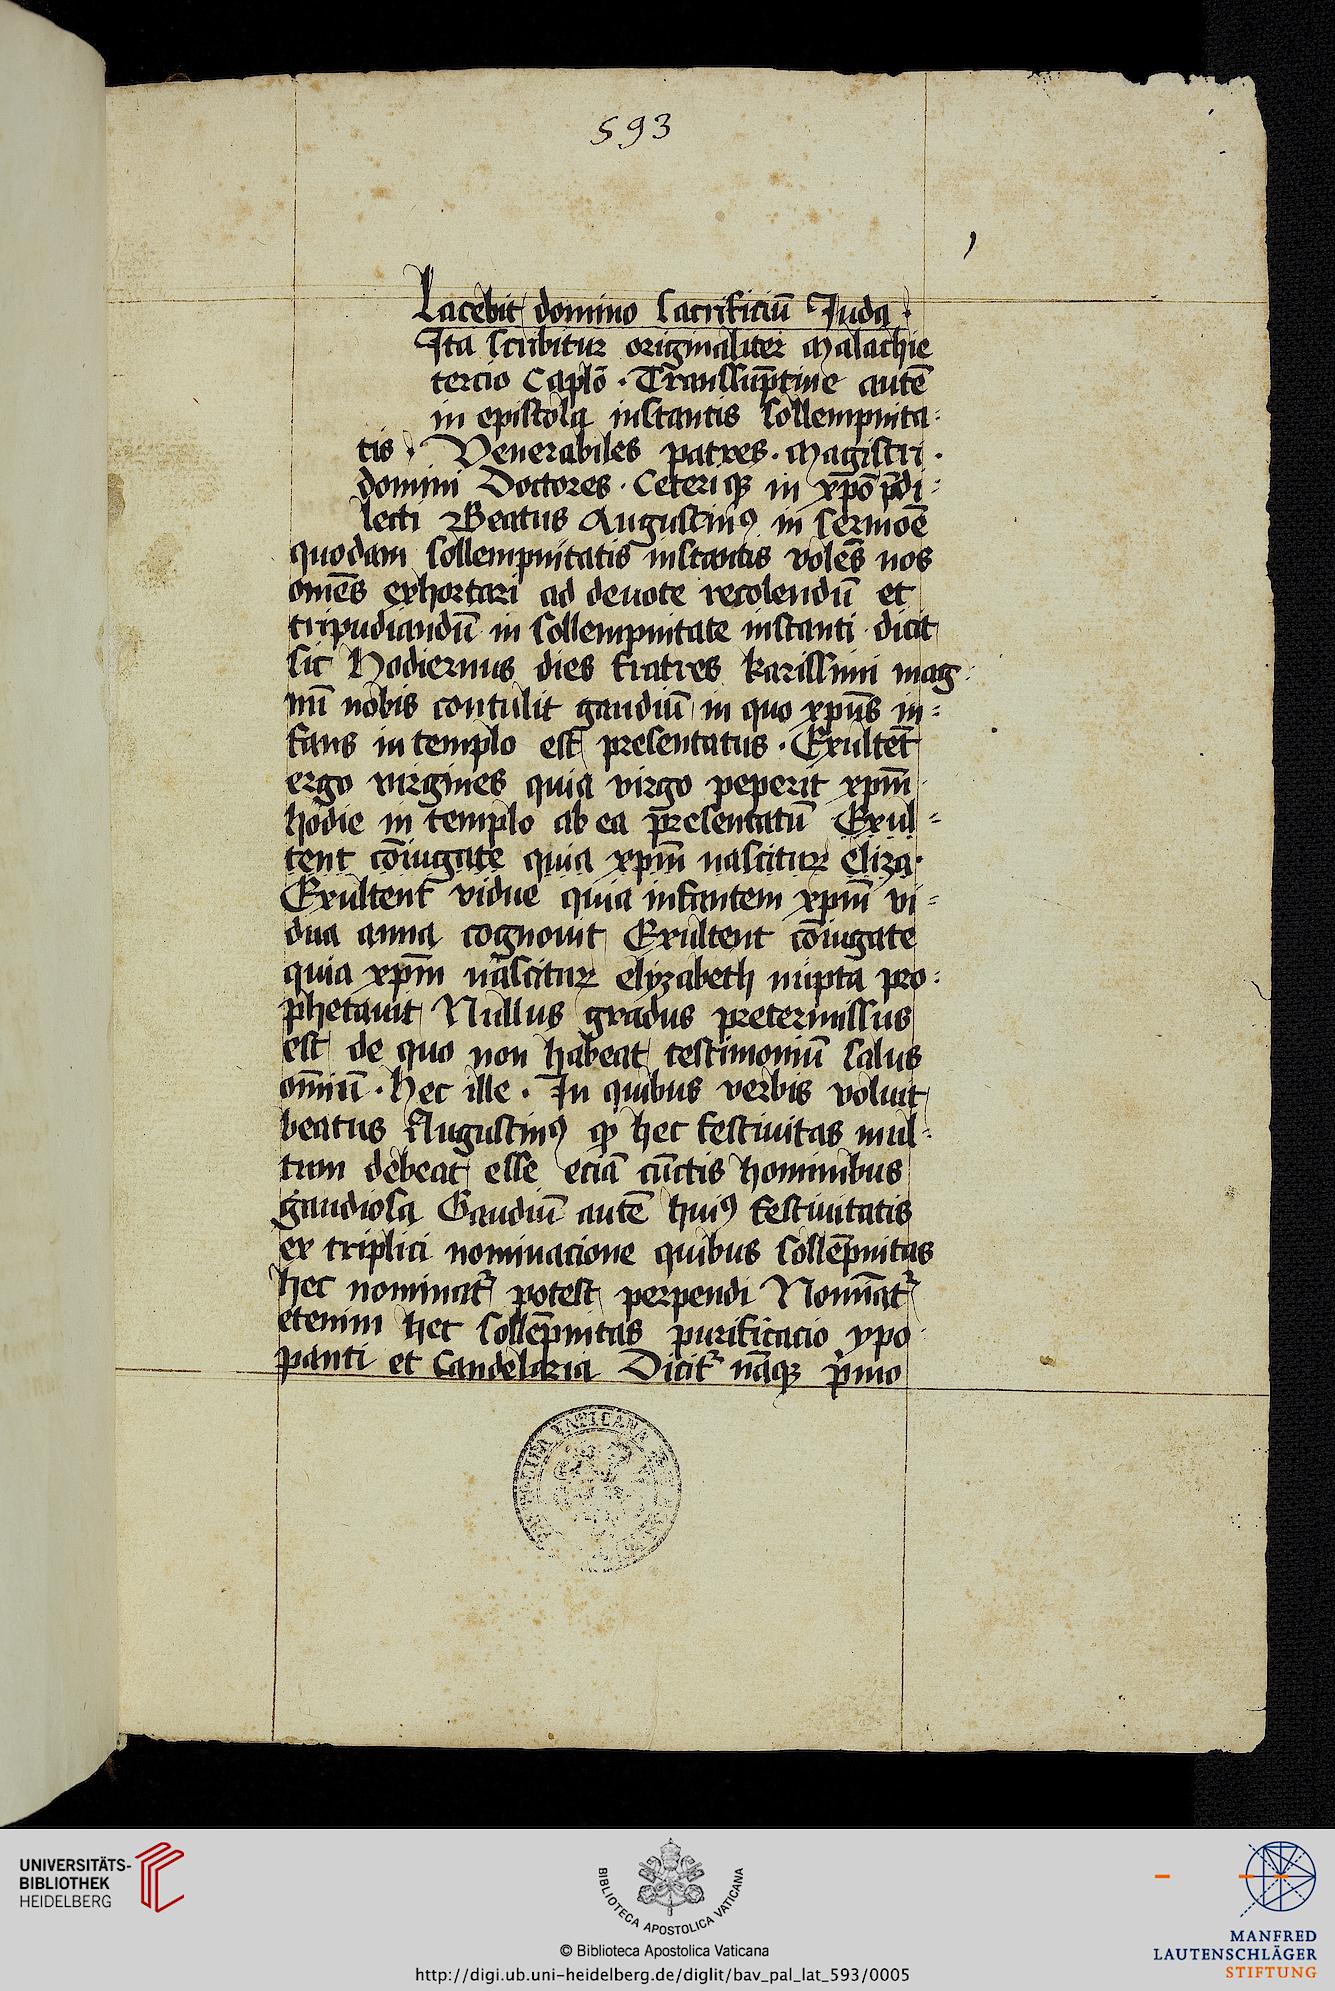 593
1
Lacebit domino sacrificiū Juda .
Ita scribitur originaliter Malachie
tercio Caplo᷃ . Transsūptiue autē
in epistola instantis sollempnita-
tis . Venerabiles patres . Magistri .
domini Doctores . Ceteriqꝫ in xp̄o p̄di-
lecti Beatus Augustinꝰ in sermoē
quodam sollempnitatis instantis volēs nos
om̄es exhortari ad deuote recolendū et
tripudiandū in sollempnitate instanti dicit
sic Hodiernus dies fratres karissimi mag-
nū nobis contulit gaudiū in quo xp̄us in-
fans in templo est presentatus . Exultet̄
ergo virgines quia virgo peperit xpm̄
hodie in templo ab ea presentatū Exul-
tent cōiugate quia xpm̄ nascituꝝ Eliza .
Exultent vidue quia infantem xpm̄ vi-
dua anna cognouit Exultent cōiugate
quia xpm̄ nascituꝝ elyzabeth nupta pro-
phetauit Nullus gradus pretermissus
est de quo non habeat testimoniū salus
om̄iū . Hec ille . In quibus verbis voluit
beatus Augustinꝰ ꝙ hec festiuitas mul-
tum debeat esse eciā cūctis hominibus
gaudiosa Gaudiū autē huiꝰ festiuitatis
ex triplici nominacione quibus sollēpnitas
hec nominat᷑ potest perpendi Nomīat᷑
etenim hec sollēpnitas purificacio ypo-
panti et Candelaria Dicit᷑ nāqꝫ p̄mo
UNIVERSITÄTS-
BIBLIOTHEK
HEIDELBERG
BIBLIOTECA APOSTOLICA VATICANA
© Biblioteca Apostolica Vaticana
http://digi.ub.uni-heidelberg.de/diglit/bav_pal_lat_593/0005
MANFRED
LAUTENSCHLÄGER
STIFTUNG